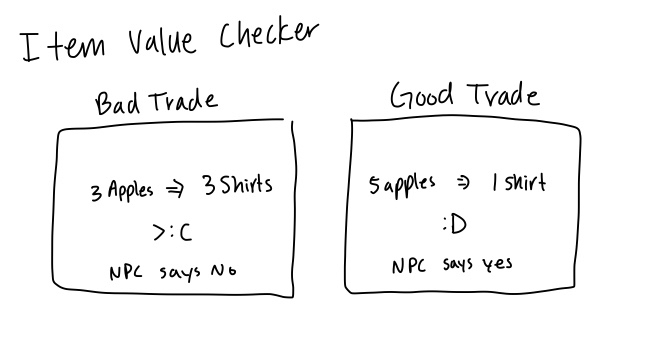 Item Value Checker
Bad Trade
3 Apples => 3 Shirts
>:C
NPC says No
Good Trade
5 apples => 1 shirt
:D
NPC says yes